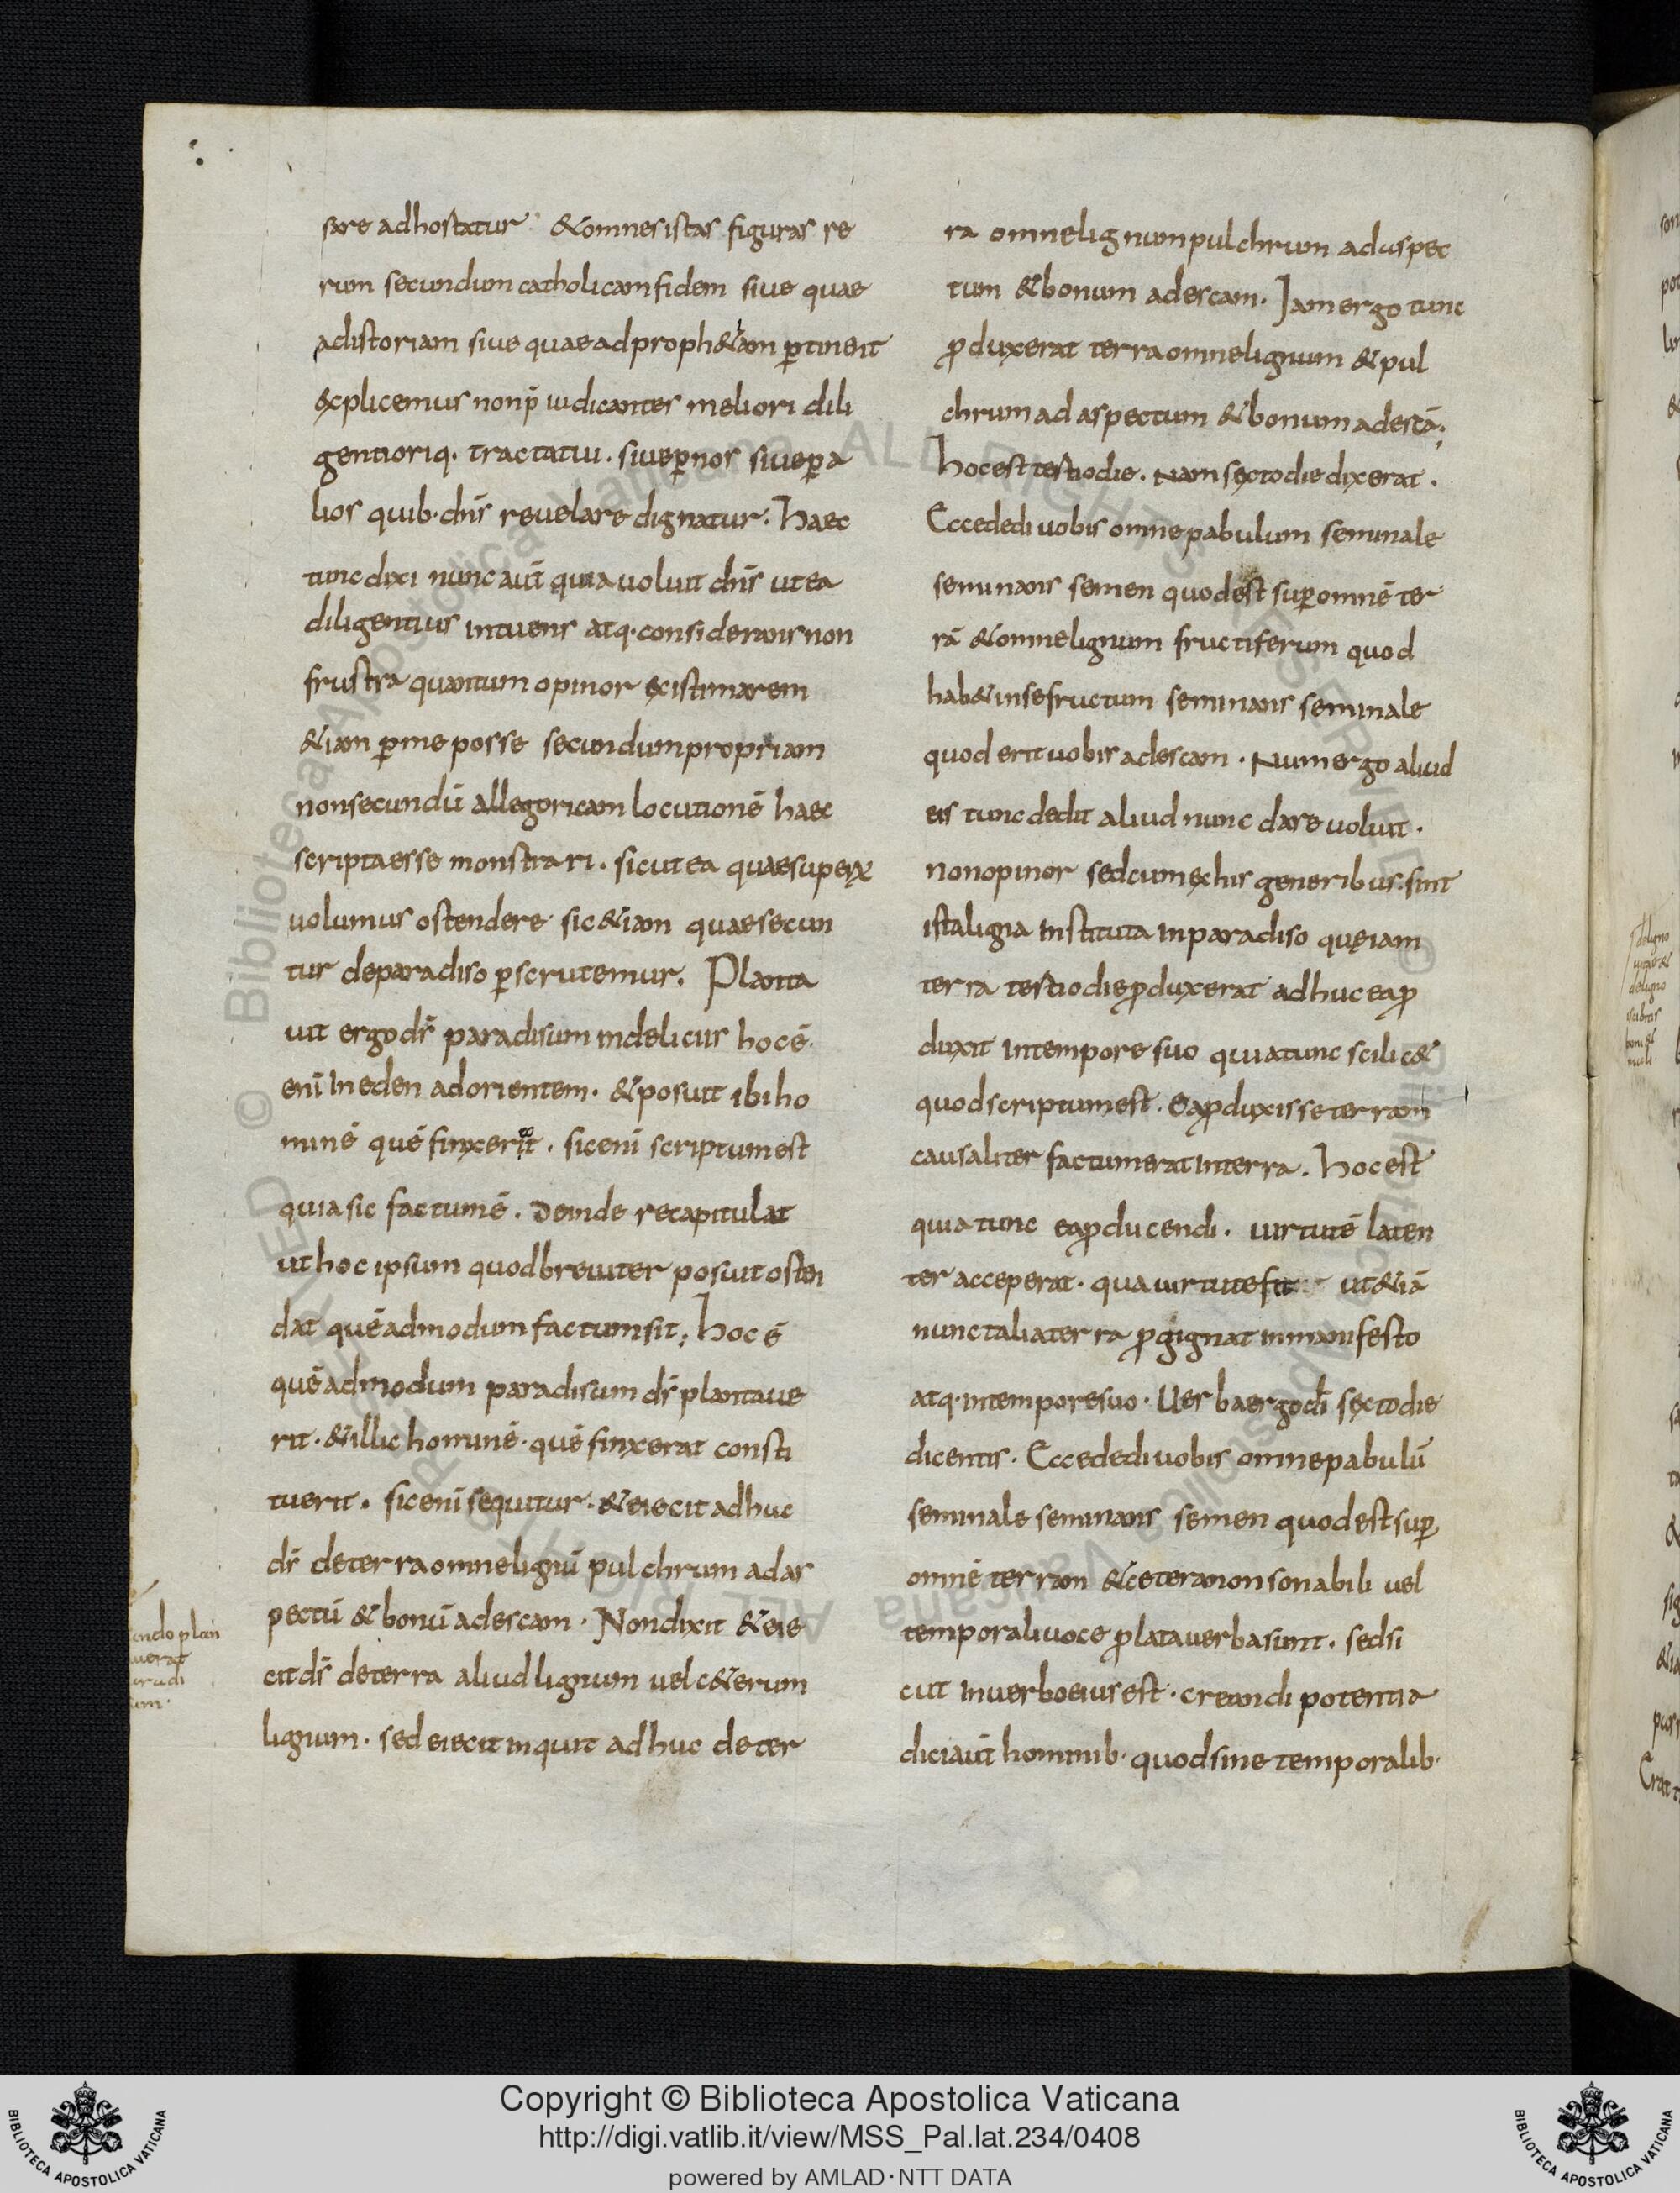 sare adhostatur &omnesistas figuras re
rum secundum catholicam fidem sive quae
adistoriam sive quae ad proph&iam ꝑtinent
explicemus non p̄iudicantes meliori dili
gentioriq· tractatui · siveꝑnos siveꝑ a
lios quib· dn̄s revelare dignatur · Haec
tunc dixi nunc aut̄ quia voluit dn̄s ut ea
diligentius intuens atq· considerans non
frustra quantum opinor existimarem
&iam ꝑme posse secundum propriam
non secundū allegoricam locutionē haec
scripta esse monstrari · sicut ea quae superi
volumus ostendere sic &iam quae secun
tur de paradiso ꝑscrutemur · Planta
vit ergo ds̄ paradisum in deliciis hoc ē·
enī in eden ad orientem · &posuit ibi ho
minē quē finxerit · sic enī scriptum est
quia sic factum ē · Deinde recapitulat
ut hoc ipsum quod breviter posuit osten
dat quē admodum factum sit; Hoc ē
quē admodum paradisum ds̄ plantave
rit · &illic hominē · quē finxerat consti
tuerit · sic enī sequitur · &eiecit adhuc
ds̄ de terra omne lignū pulchrum ad as
pectū &bonū ad escam · Non dixit &eie
cit ds̄ de terra aliud lignum vel c&erum
lignum · sed eiecit inquit adhuc de ter
ra omne lignum pulchrum ad aspec
tum &bonum ad escam · Iam ergo tunc
ꝓduxerat terra omne lignum &pul
chrum ad aspectum &bonum ad escā;
Hoc est tertio die · Nam sexto die dixerat ·
Ecce dedi vobis omne pabulum seminale
seminans semen quod est suꝑ omnē ter
rā &omne lignum fructiferum quod
hab& in se fructum seminans seminale
quod erit vobis ad escam · Num ergo aliud
eis tunc dedit aliud nunc dare voluit ·
non opinor sed cum ex his generibus sint
ista ligna instituta in paradiso quę iam
terra tertio die ꝓduxerat adhuc ea ꝓ
duxit in tempore suo quia tunc scilic&
quod scriptum est · ea ꝓduxisse terram
causaliter factum erat in terra · Hoc est
quia tunc ea ꝓducendi · virtutē laten
ter acceperat · qua virtute fit ut &iā
nunc talia terra ꝓgignat in manifesto
atq· in tempore suo · Verba ergo dī sexto die
dicentis · Ecce dedi vobis omne pabulū
seminale seminans semen quod est suꝑ
omnē terram &cetera non sonabili vel
temporali voce ꝓlata verba sunt · sed si
cut in verbo eius est · creandi potentia
dici aut̄ hominib· quod sine temporalib·
Copyright © Biblioteca Apostolica Vaticana
http://digi.vatlib.it/view/MSS_Pal.lat.234/0408
powered by AMLAD·NTT DATA
BIBLIOTECA APOSTOLICA VATICANA
BIBLIOTECA APOSTOLICA VATICANA